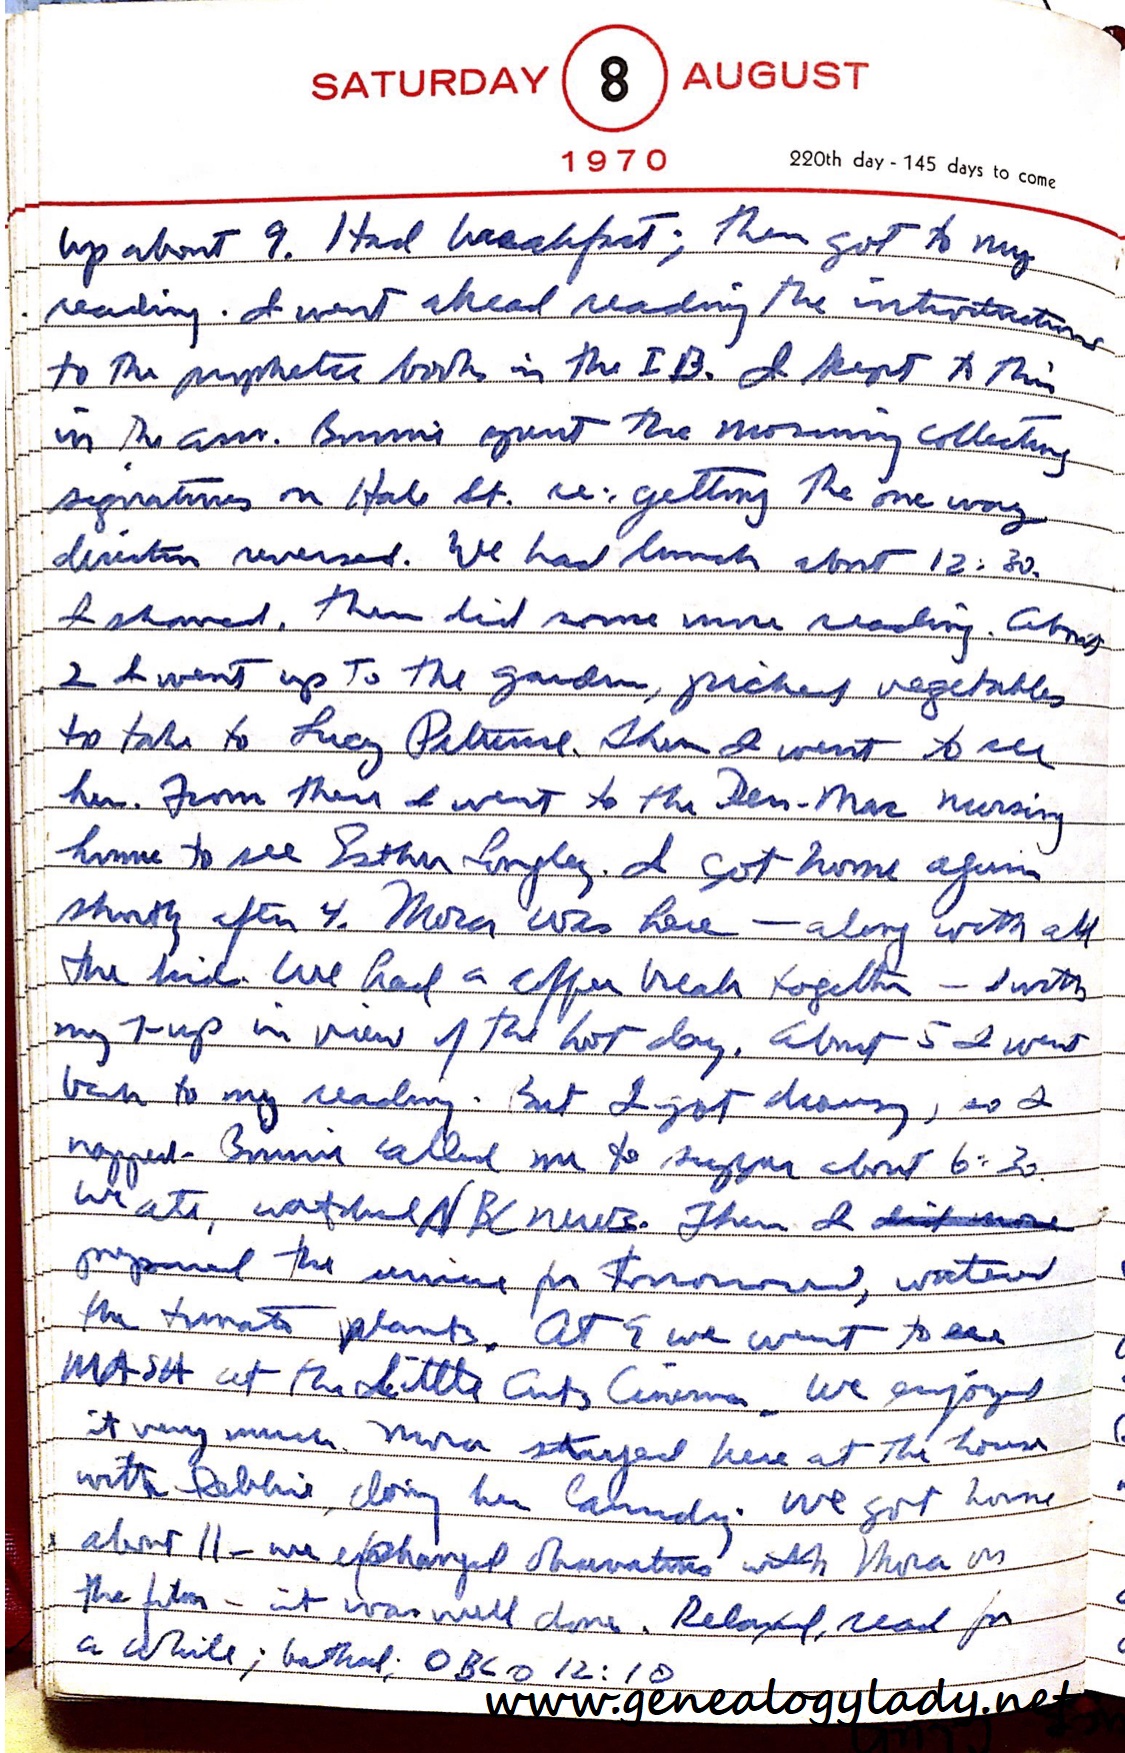 SATURDAY 8 AUGUST
1970 220th day - 145 days to come
Up about 9. Had breakfast; then got to my
reading. I went ahead reading the introductions
to the prophetic books in the I B. I kept to this
in the a.m. Bonnie spent the morning collecting
signatures on Hale St. re: getting the one way
direction reversed. We had lunch about 12:30.
I shaved, then did some more reading. About
2 I went up to the garden, picked vegetables
to take to Lucy Then I went to see
her. From there I went to the Den-Mar nursing
home to see Esther Longley. I got home again
shortly after 4. Mora was here — along with all
the kids. We had a coffee break together — I with
my 7-up in view of the hot day. About 5 I went
back to my reading. But I got drowsy, so I
napped. Bonnie called me to supper about 6:30.
We ate, watched NBC news. Then I did more
prepared the service for tomorrow, watered
the tomato plants. At 9 we went to see
MASH at the Little Arts Cinema. We enjoyed
it very much. Mora stayed here at the house
with Debbie, doing her laundry. We got home
about 11 – we exchanged observations with Mora on
the film – it was well done. Relaxed, read for
a while; bathed; 12:10
www.genealogylady.net